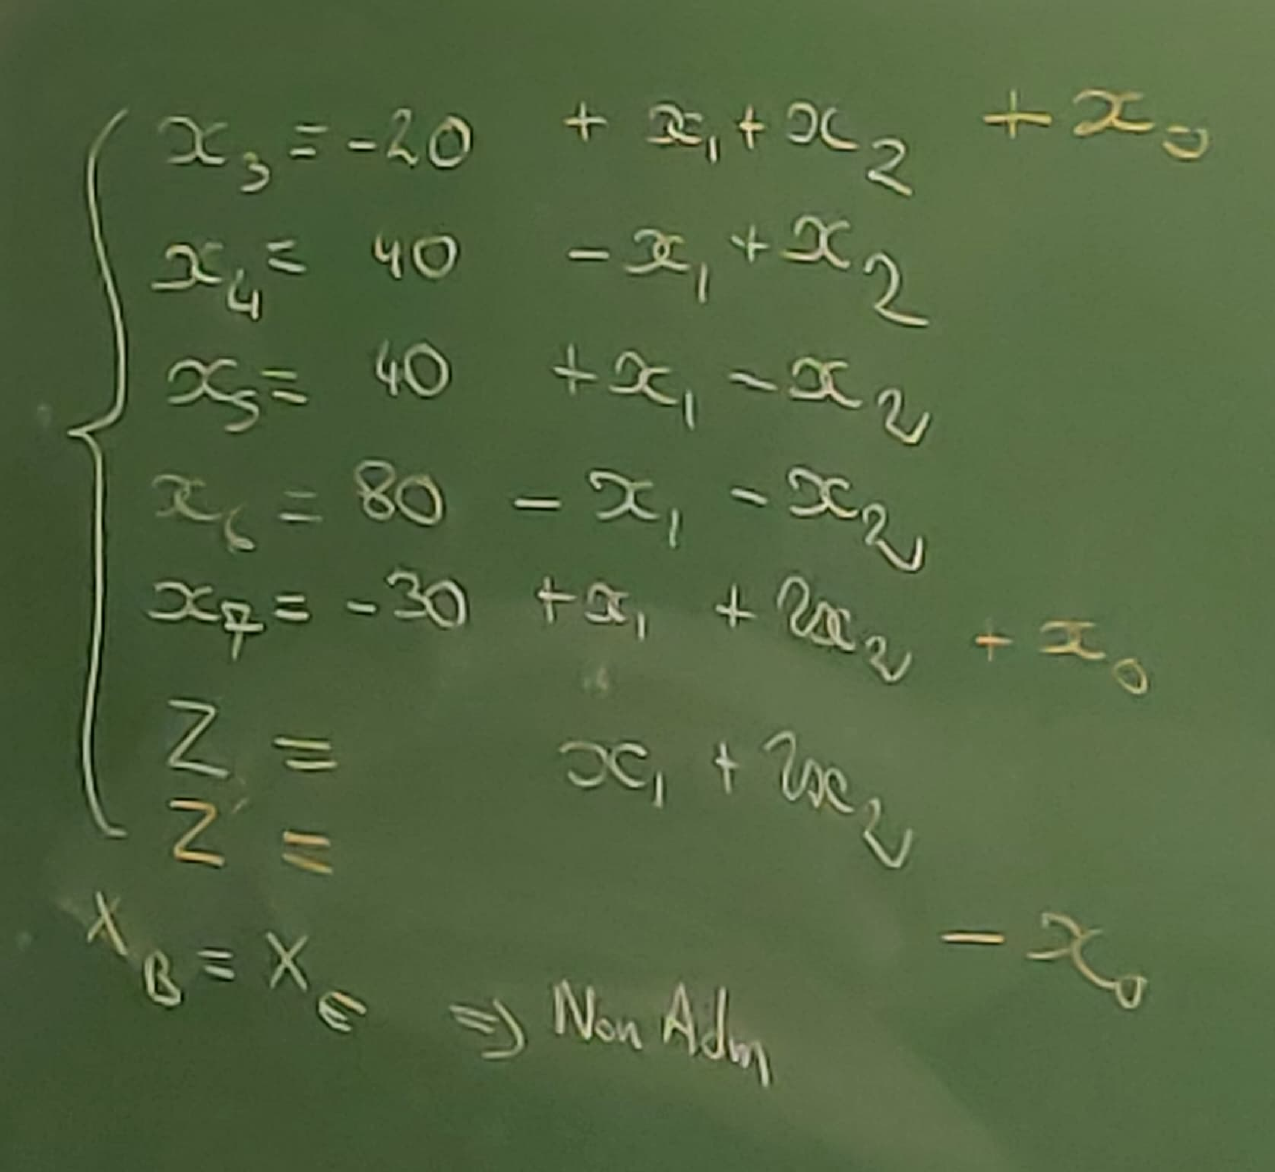 x₃ = -20 + x₁ + x₂ + x₀
x₄ = 40 - x₁ + x₂
x₅ = 40 + x₁ - x₂
x₆ = 80 - x₁ - x₂
x₇ = -30 + x₁ + 2x₂ + x₀
Z = x₁ + 2x₂
Z' = - x₀
X_B = X_E ⇒ Non Adm